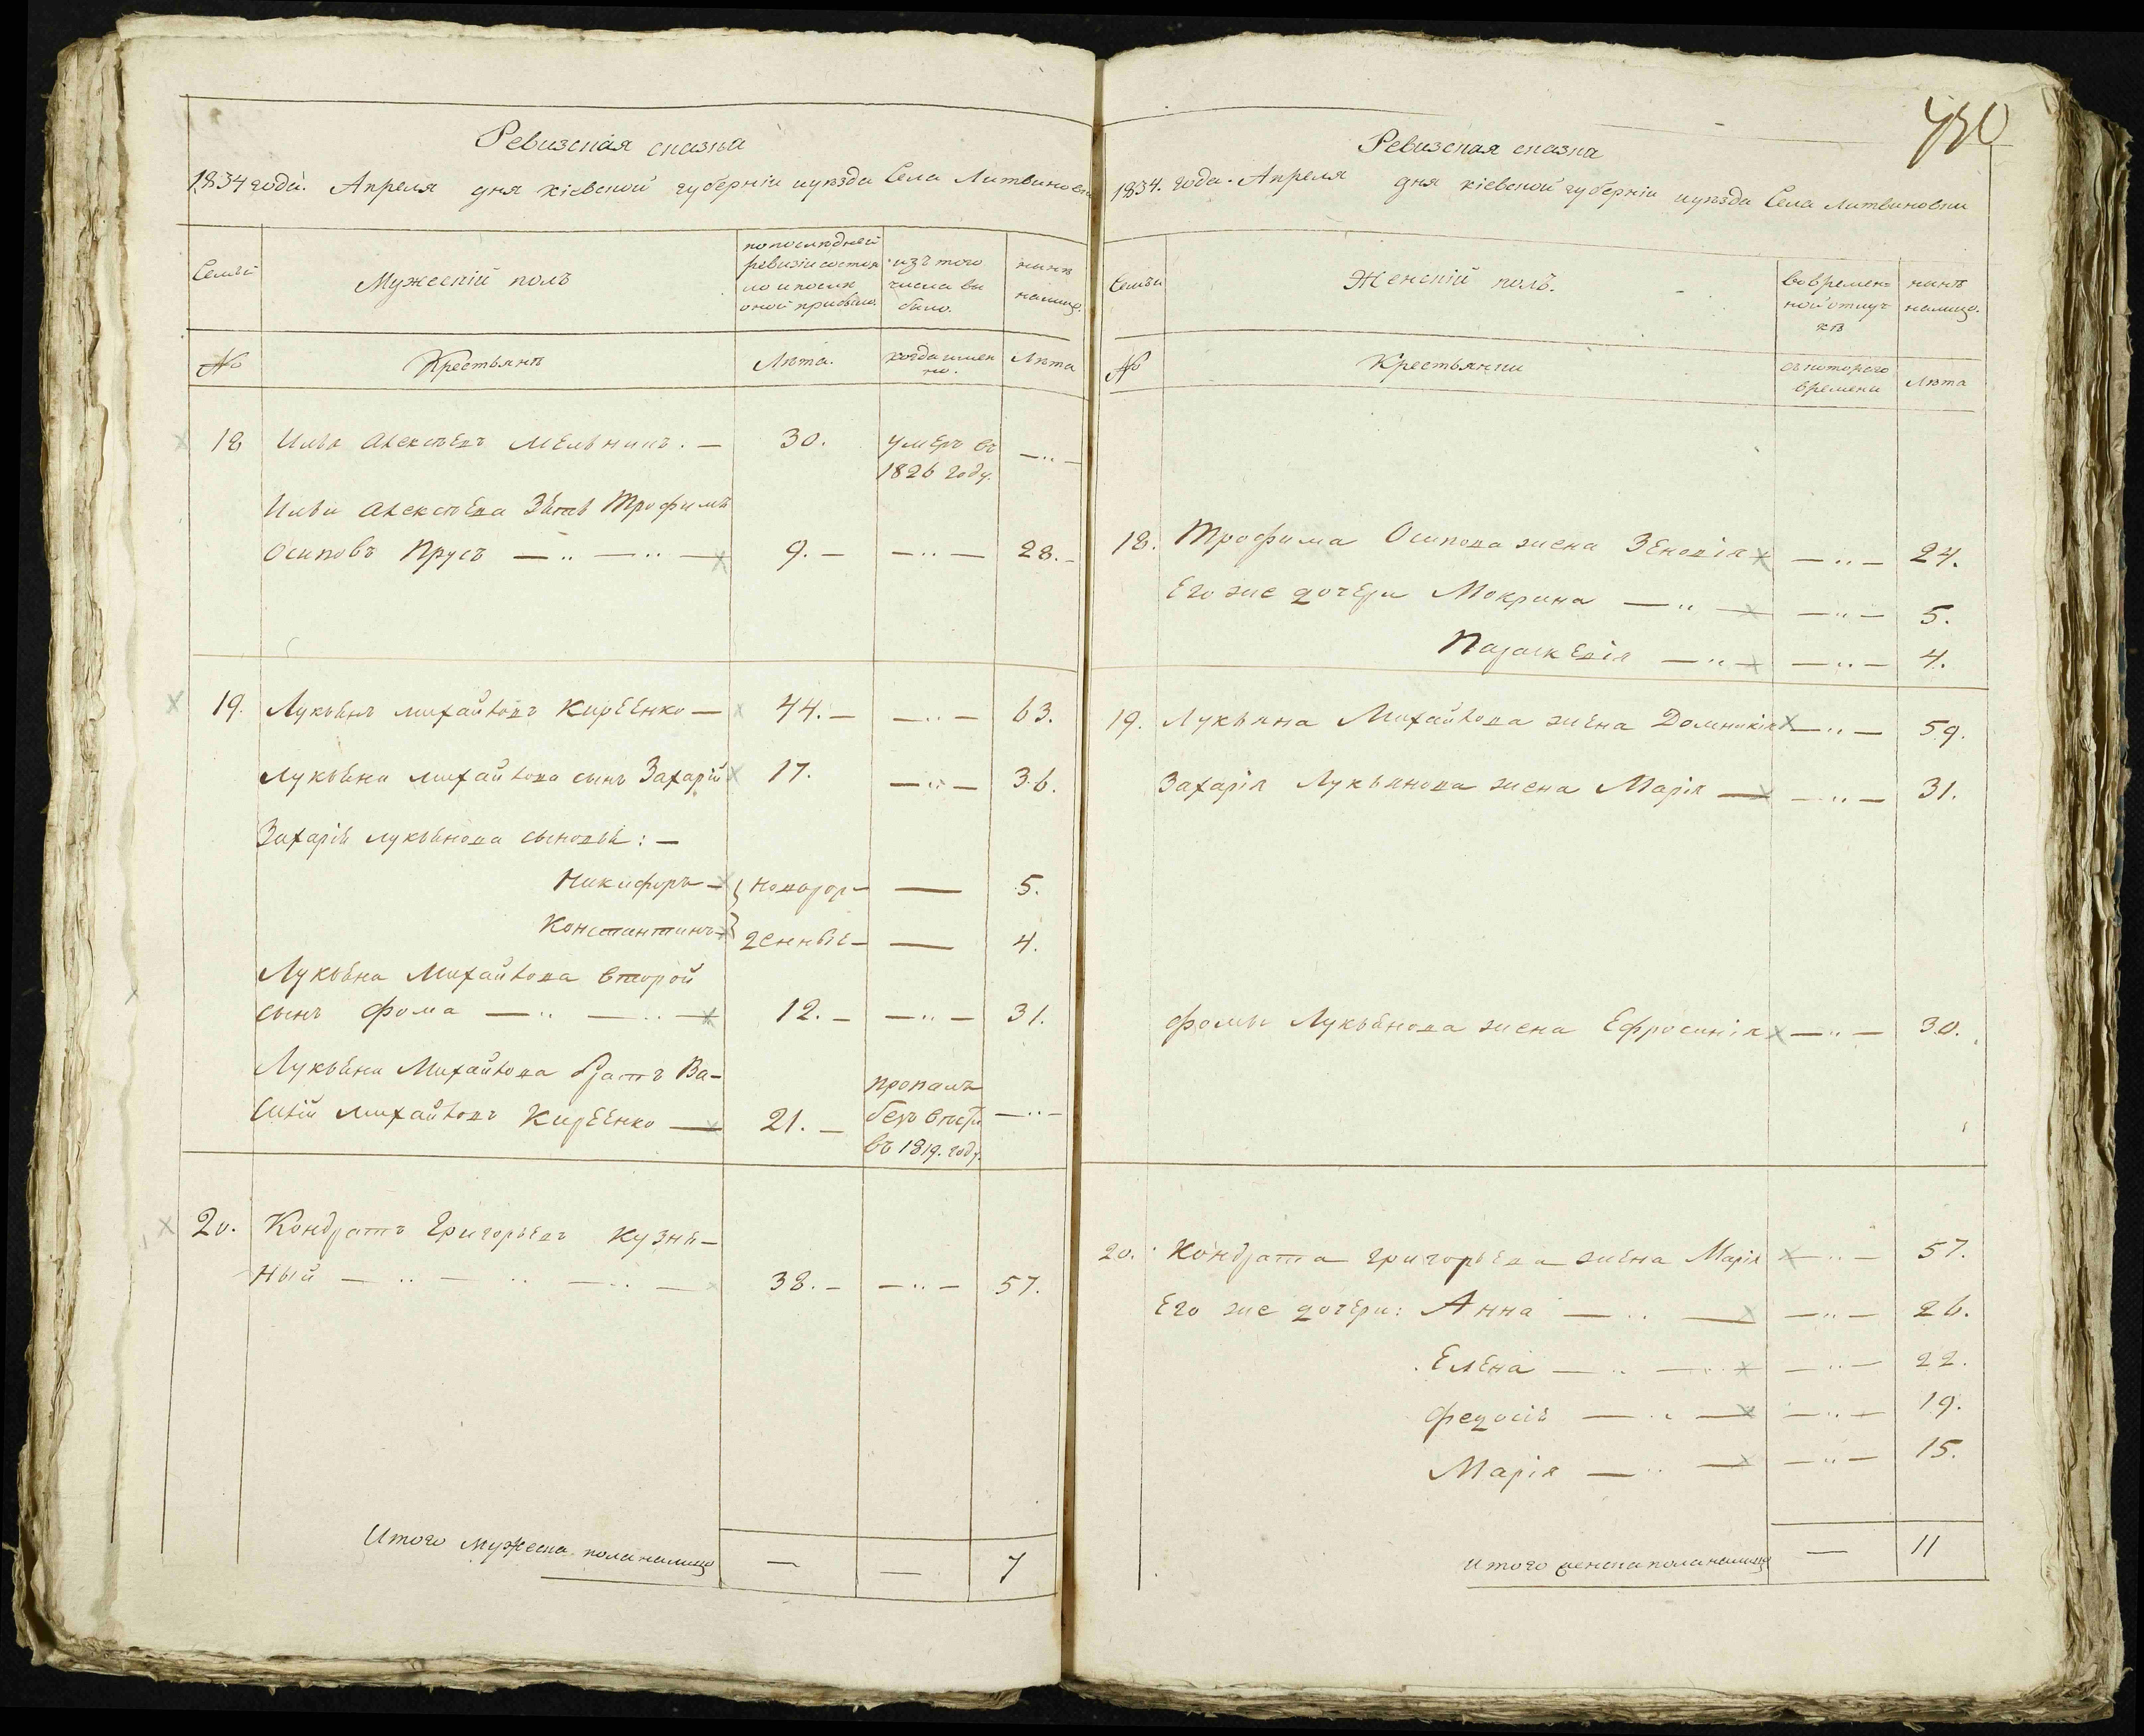 Ревизская сказка
1834 года. Апреля дня кіевской губерніи и уѣзда Села Литвиновки
Семьи
Мужескій полъ
по последней ревизіи состояло и после оной прибыло.
изъ того числа выбыло.
нынѣ налицо.
№
Крестьянѣ
Лѣта.
когда имен но.
Лѣта
18 Илья Алексѣевъ Мельникъ. — 30. умеръ въ 1826 году. — " —
Ильи Алексѣева Зять Трофимъ
Осиповъ Прусъ — " — " — 9. — — " — 28. -
19. Лукьянъ Михайловъ Киреенко — 44. — — " — 63.
Лукьяна Михайлова сынъ Захарій 17. — " — 36.
Захарія Лукьянова сыновья: —
Никифоръ — } новорож — — 5.
Константинъ — } денные — — 4.
Лукьяна Михайлова второй
сынъ Фома — " — " — 12. — — " — 31.
Лукьяна Михайлова братъ Ва-
силій Михайловъ Киреенко — 21. — пропалъ безъ вѣсти въ 1819. году. — " —
20. Кондратъ Григорьевъ Кузнѣ-
ный — " — " — " — 38. — — " — 57.
Итого мужеска пола налицо — — 7
430
Ревизская сказка
1834. года. Апреля дня кіевской губерніи и уѣзда Села Литвиновки
Семьи
Женскій полъ.
во времен= ной отлуч кѣ
нынѣ налицо.
№
Крестьянки
съ которого времени
Лѣта
18. Трофима Осипова жена Зеновія — " — 24.
Его же дочери Мокрина — " — — " — 5.
Параскевія — " — — " — 4.
19. Лукьяна Михайлова жена Домникія — " — 59.
Захарія Лукьянова жена Марія — — " — 31.
Фомы Лукьянова жена Ефросинія — " — 30.
20. Кондрата Григорьева жена Марія — " — 57.
Его же дочери: Анна — " — — " — 26.
Елена — " — " — — " — 22.
Федосія — " — — " — 19.
Марія — " — — " — 15.
Итого женска пола налицо — 11